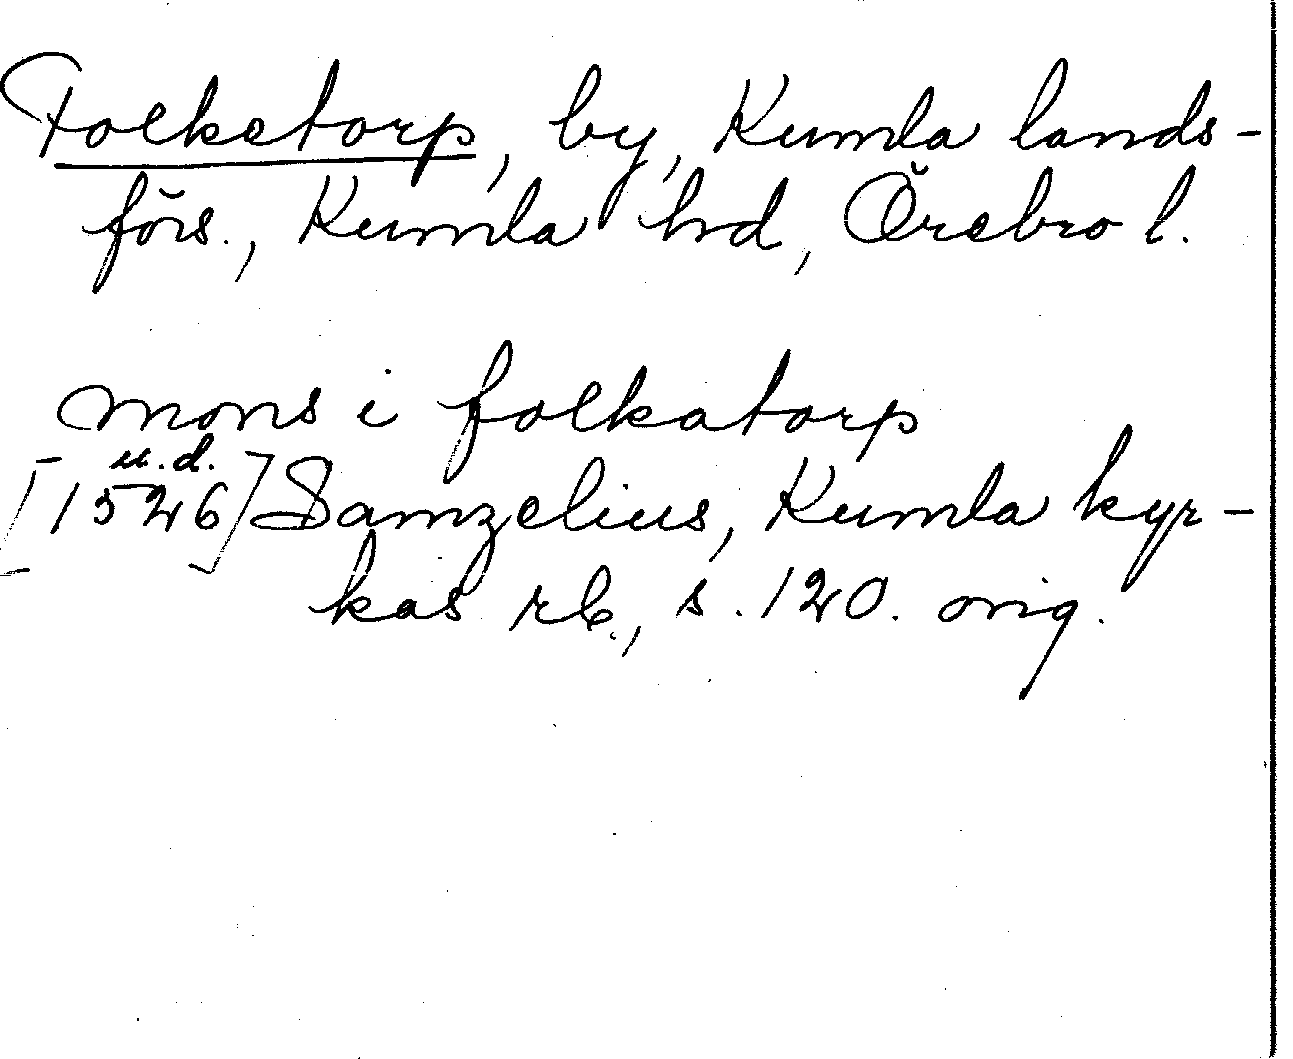 Folketorp, by, Kumla lands-
förs., Kumla hd, Örebro l.
mons i folkatorp
u.d.
[1526] Samzelius, Kumla kyr-
kas rb., s. 120. orig.